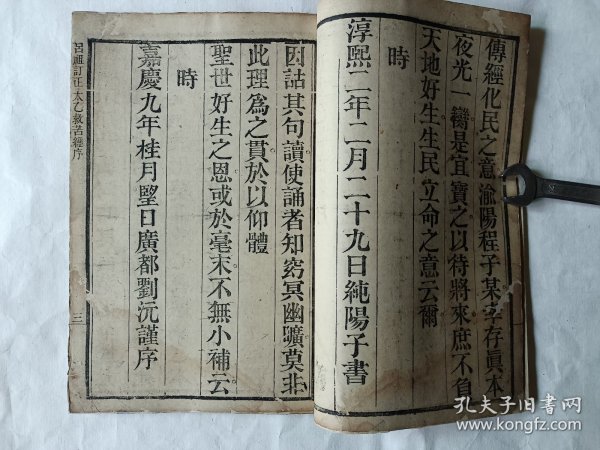 傳經化民之意渝陽程子某幸存眞本
夜光一臠是宜寶之以待將來庶不負
天地好生生民立命之意云爾
時
淳熙二年二月二十九日純陽子書
因詁其句讀使誦者知窈冥幽曠莫非
此理爲之貫於以仰體
聖世好生之恩或於毫末不無小補云
時
嘉慶九年桂月朢日廣都劉沅謹序
呂祖訂正太乙救苦經序
三
孔夫子旧书网
www.kongfz.com